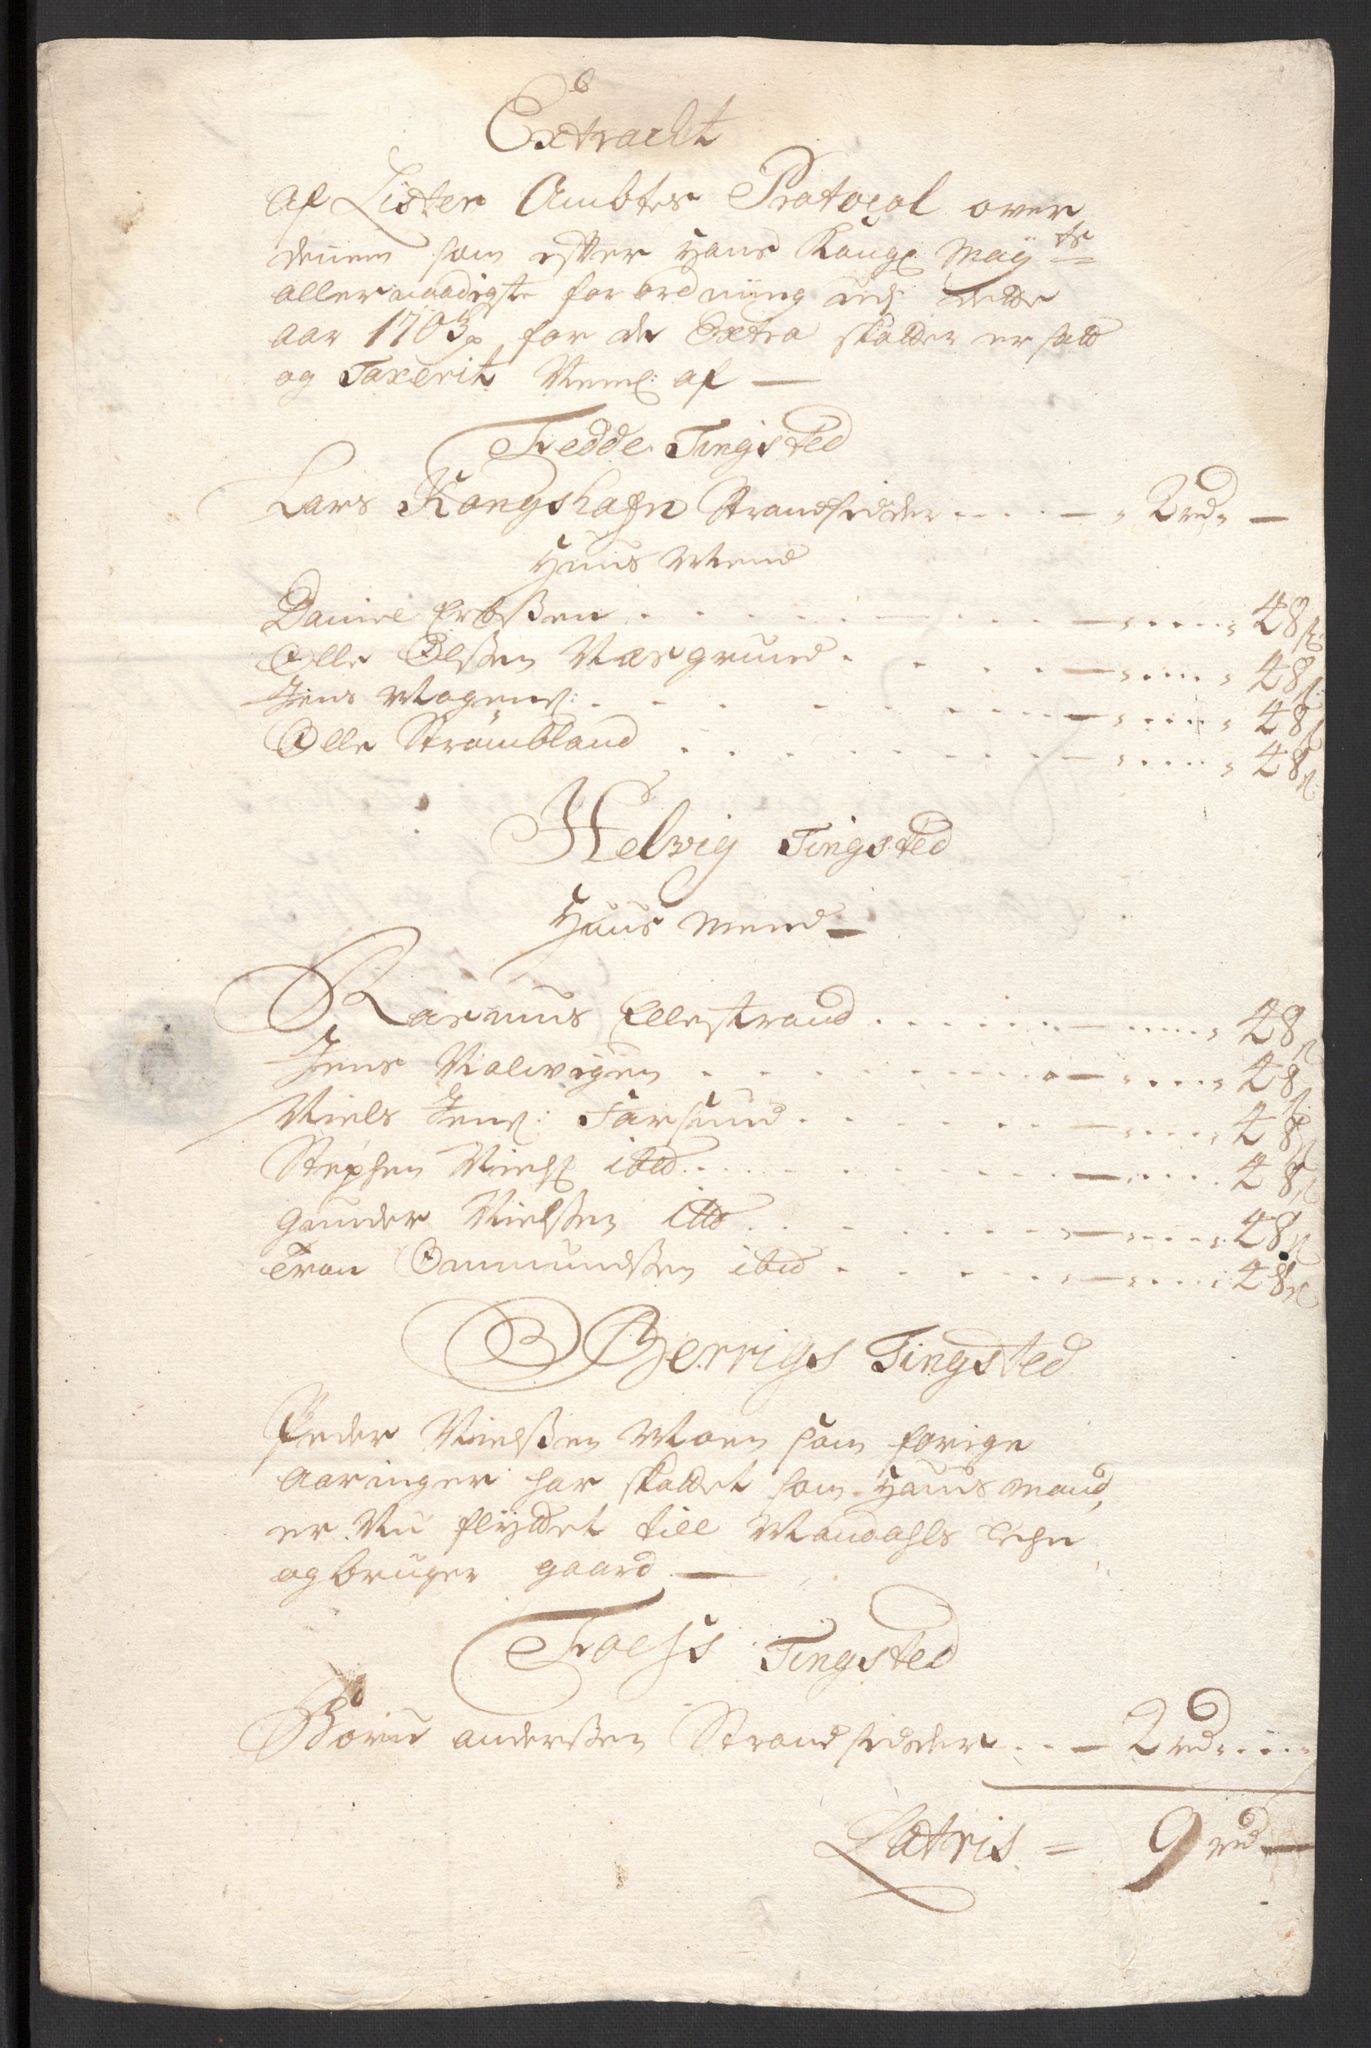 Extracht
af Lister Ambtes Protocol over
dennem som efter Hans Kongl: May:ts
allernaadigste forordning udj dette
aar 1703 for de Extra skatter er satt
og Taxerit Neml: af —
Fedde Tingsted
Lars Kongshafn Strandsidder .... — „ 2 rd „ —
Huus Mend
Daniel Erbßen . . . . . — „ .... „ 48 ß
Olle Olßen Næsgrund . . . . . — „ .... „ 48 ß
Jens Mogens: . . . . . — „ .... „ 48 ß
Olle Strömbland . . . . . — „ .... „ 48 ß
Helvig Tingsted
Huus mend —
Rasmus Ellestrand . . . . . — .... „ 48 ß
Jens Nalwigen . . . . . — „ .... „ 48 ß
Niels Jens: Farsund . . . . . — „ .... „ 48 ß
Stephen Niels: ibid . . . . . — .... 48 ß
Gunder Nielßen itto . . . . . — „ .... „ 48 ß
Tron Ommundßen ibid . . . . . — „ .... „ 48 ß
Berrigs Tingsted
Peder Nielßen Moen som forige
Aaringer har skattet som Huus mand,
er Nu flyttet till Mandahls Lehn
og bruger gaard —
Foehs Tingsted
Börre anderßen Strandsidder ... — 2 rd „ ....
Latris = 9 rd —